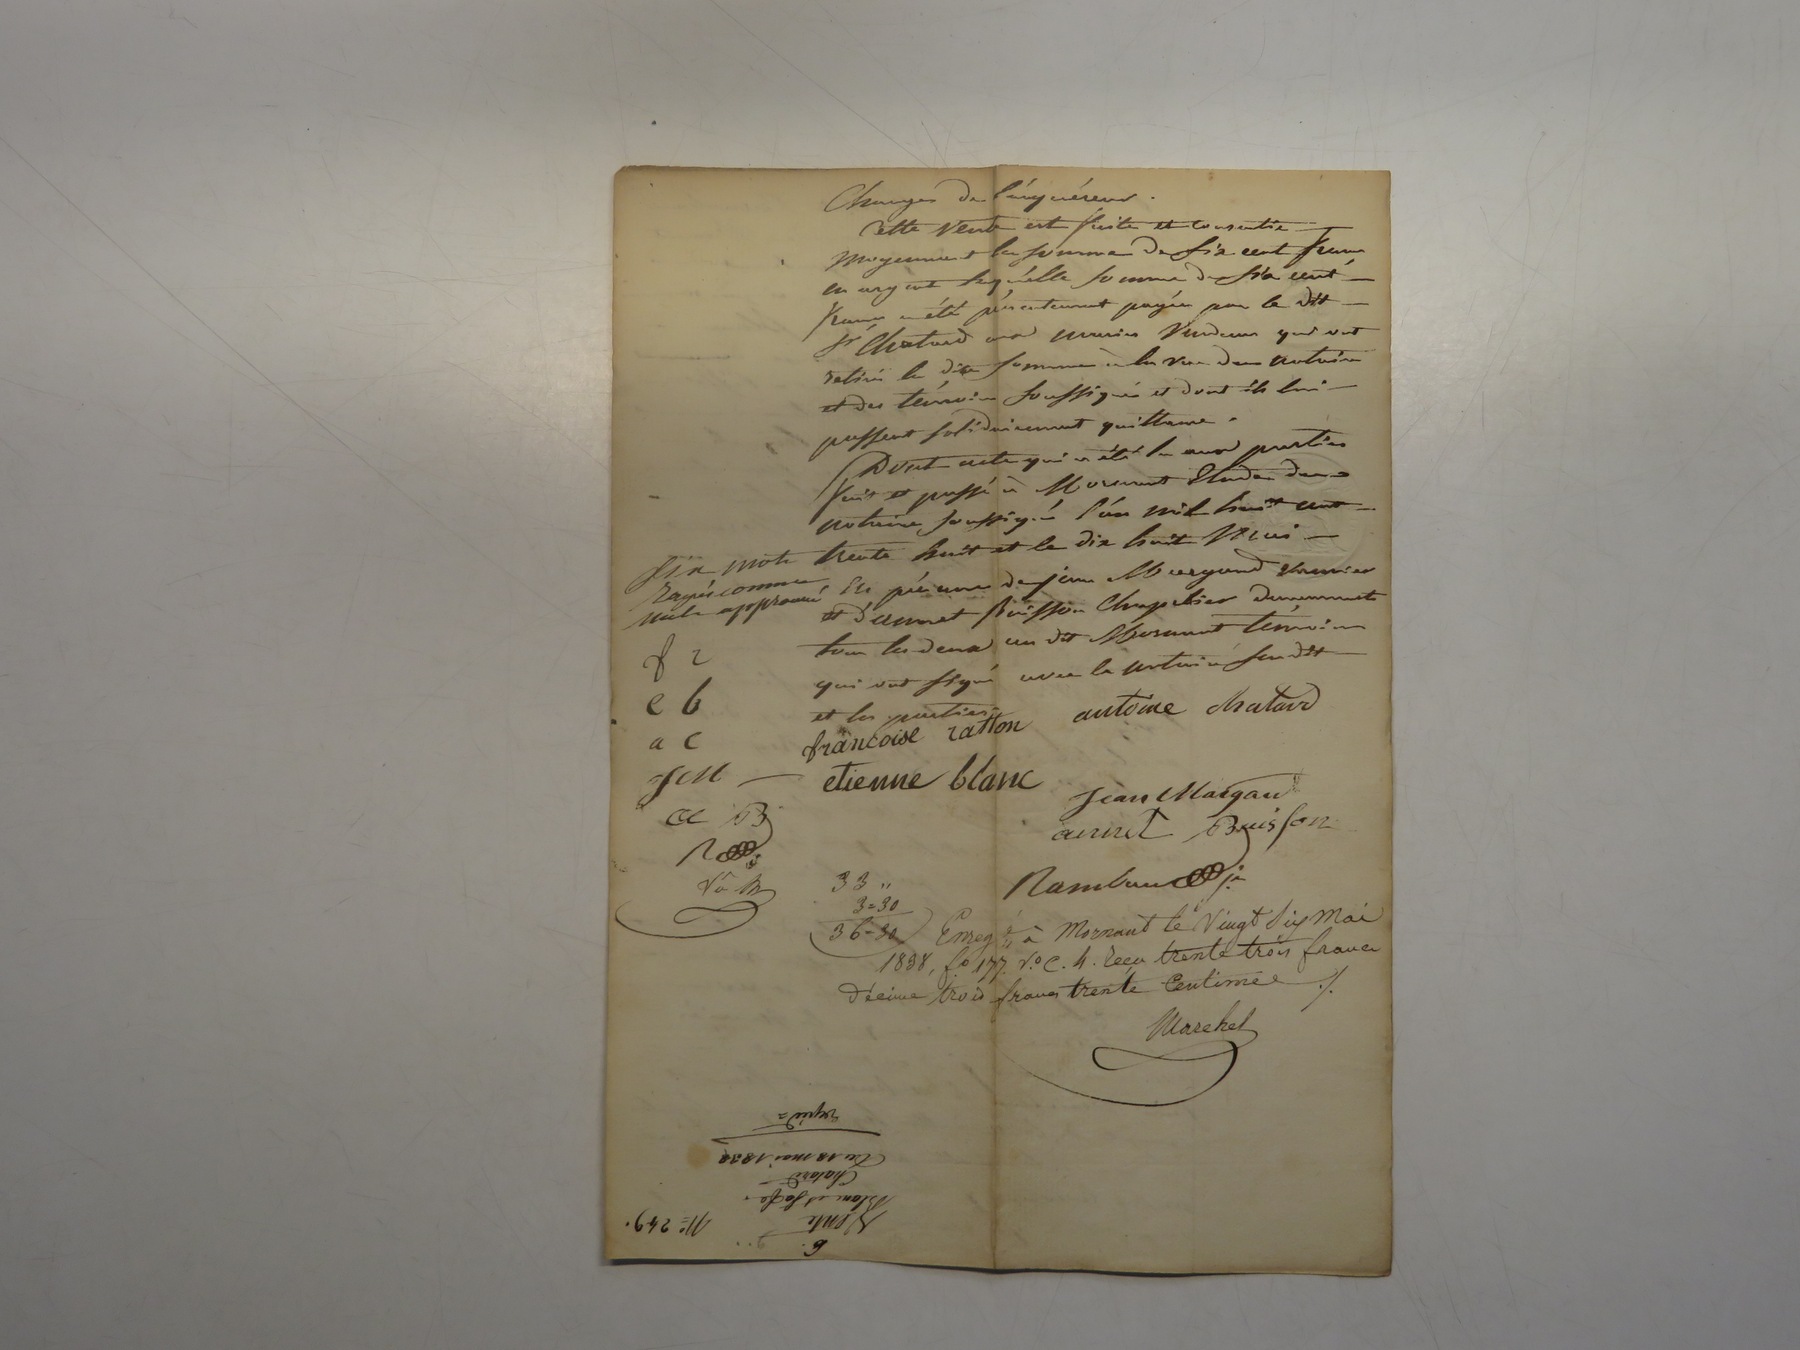 Charges de l'acquéreur.
Cette vente est faite et consentie
moyennant la somme de six cent francs
en argent laquelle somme de six cent
francs a été présentement payée par le dit
Sr Chatard aux mariés Vendeurs qui ont
retiré la dite somme à la vue du notaire
et des témoins soussignés et dont ils lui
passent solidairement quittance.
Dont acte qui a été lu aux parties
fait et passé à Mornant Etude du
notaire soussigné l'an mil huit cent
trente huit et le dix huit Mai
En présence de jean Margand
et d'annet Buisson Chapelier demeurant
tous les deux au dit Mornant témoins
qui ont signé avec le notaire susdit
et les parties.
Six mots
rayés comme
nuls approuvé
f r
e b
a c
JM
a B
R
françoise ratton antoine chatard
etienne blanc
Jean Margand
annet Buisson
Rambaud je
33 "
3=30
36=30
Enregé à Mornant le Vingt Six Mai
1838, fo 177 v.o C. 4. Reçu trente trois francs
décime trois francs trente Centimes ./.
Marehel
N.o 249.
6.
Vente
Blanc et sa fe
à
Chatard
Du 18 mai 1838
Expéd=